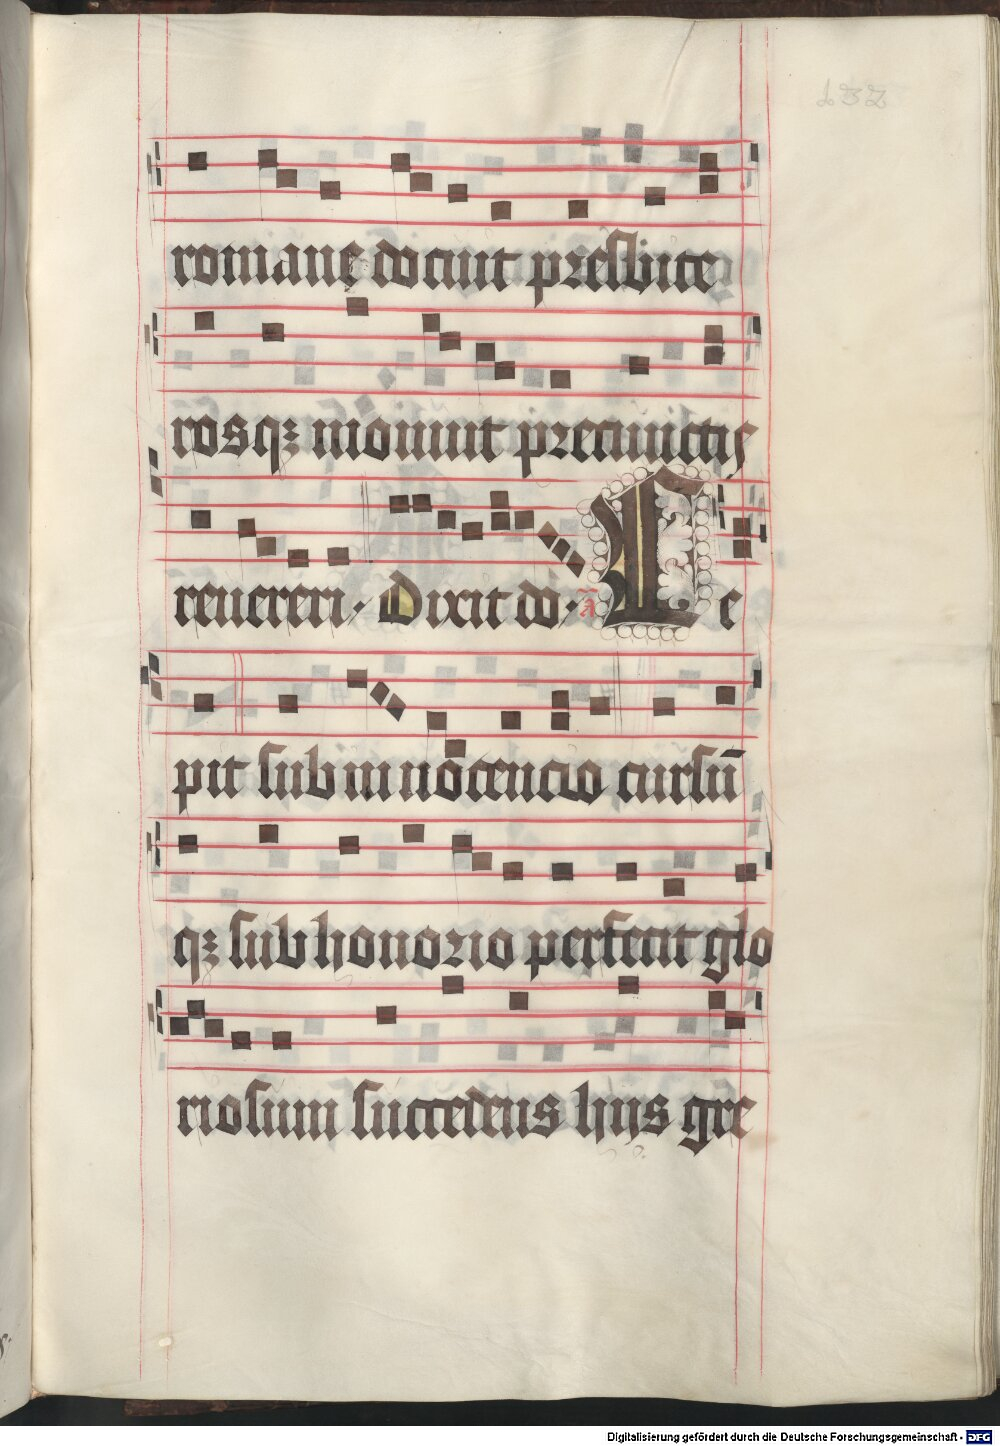 132
romanę docuit presbite
rosqz monuit precunctis
reuereri · Dixit do · a Ce
pit sub innocencio cursū
qz sub honorio perfecit glo
riosum succedens hijs gre
Digitalisierung gefördert durch die Deutsche Forschungsgemeinschaft - DFG